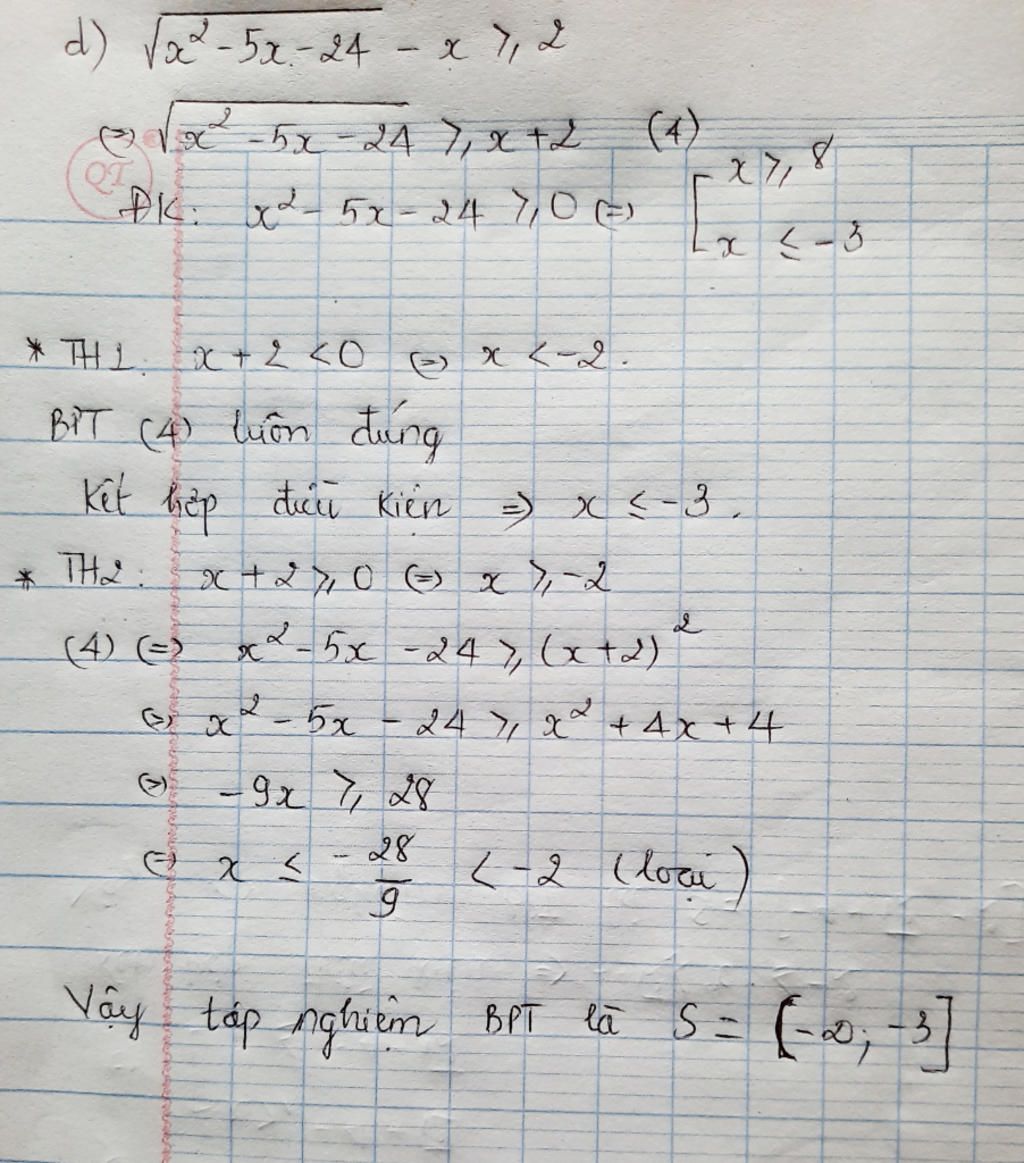 d) √(x² - 5x - 24) - x ≥ 2
⇔ √(x² - 5x - 24) ≥ x + 2 (4)
QT
ĐK: x² - 5x - 24 ≥ 0 ⇔ [ x ≥ 8
x ≤ -3
* TH1: x + 2 < 0 ⇔ x < -2.
BPT (4) luôn đúng
Kết hợp điều kiện ⇒ x ≤ -3.
* TH2: x + 2 ≥ 0 ⇔ x ≥ -2
(4) ⇔ x² - 5x - 24 ≥ (x + 2)²
⇔ x² - 5x - 24 ≥ x² + 4x + 4
⇔ -9x ≥ 28
⇔ x ≤ -28/9 < -2 (loại)
Vậy tập nghiệm BPT là S = [-∞; -3]